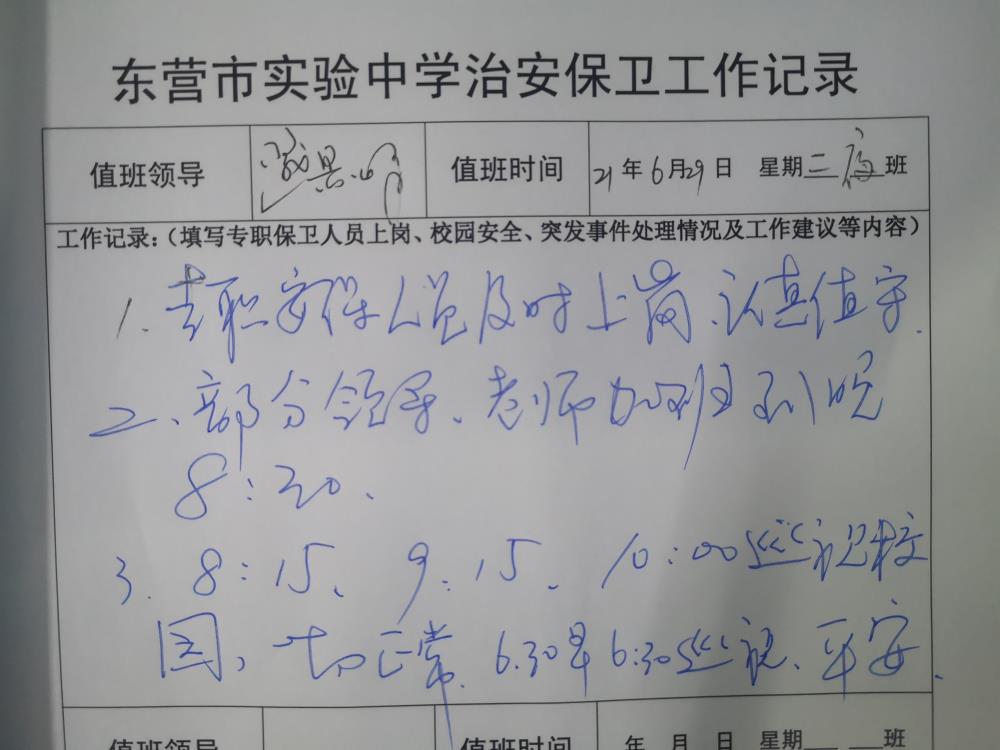 东营市实验中学治安保卫工作记录
值班领导 值班时间 21年6月29日 星期二夜班
工作记录:(填写专职保卫人员上岗、校园安全、突发事件处理情况及工作建议等内容)
1.专职安保人员及时上岗、认真值守.
2、部分领导、老师加班到晚
8:20、
3.8:15、9:15、10:00巡视校
园、一切正常.6.30早6:30巡视、平安.
值班领导 值班时间 年 月 日 星期 班